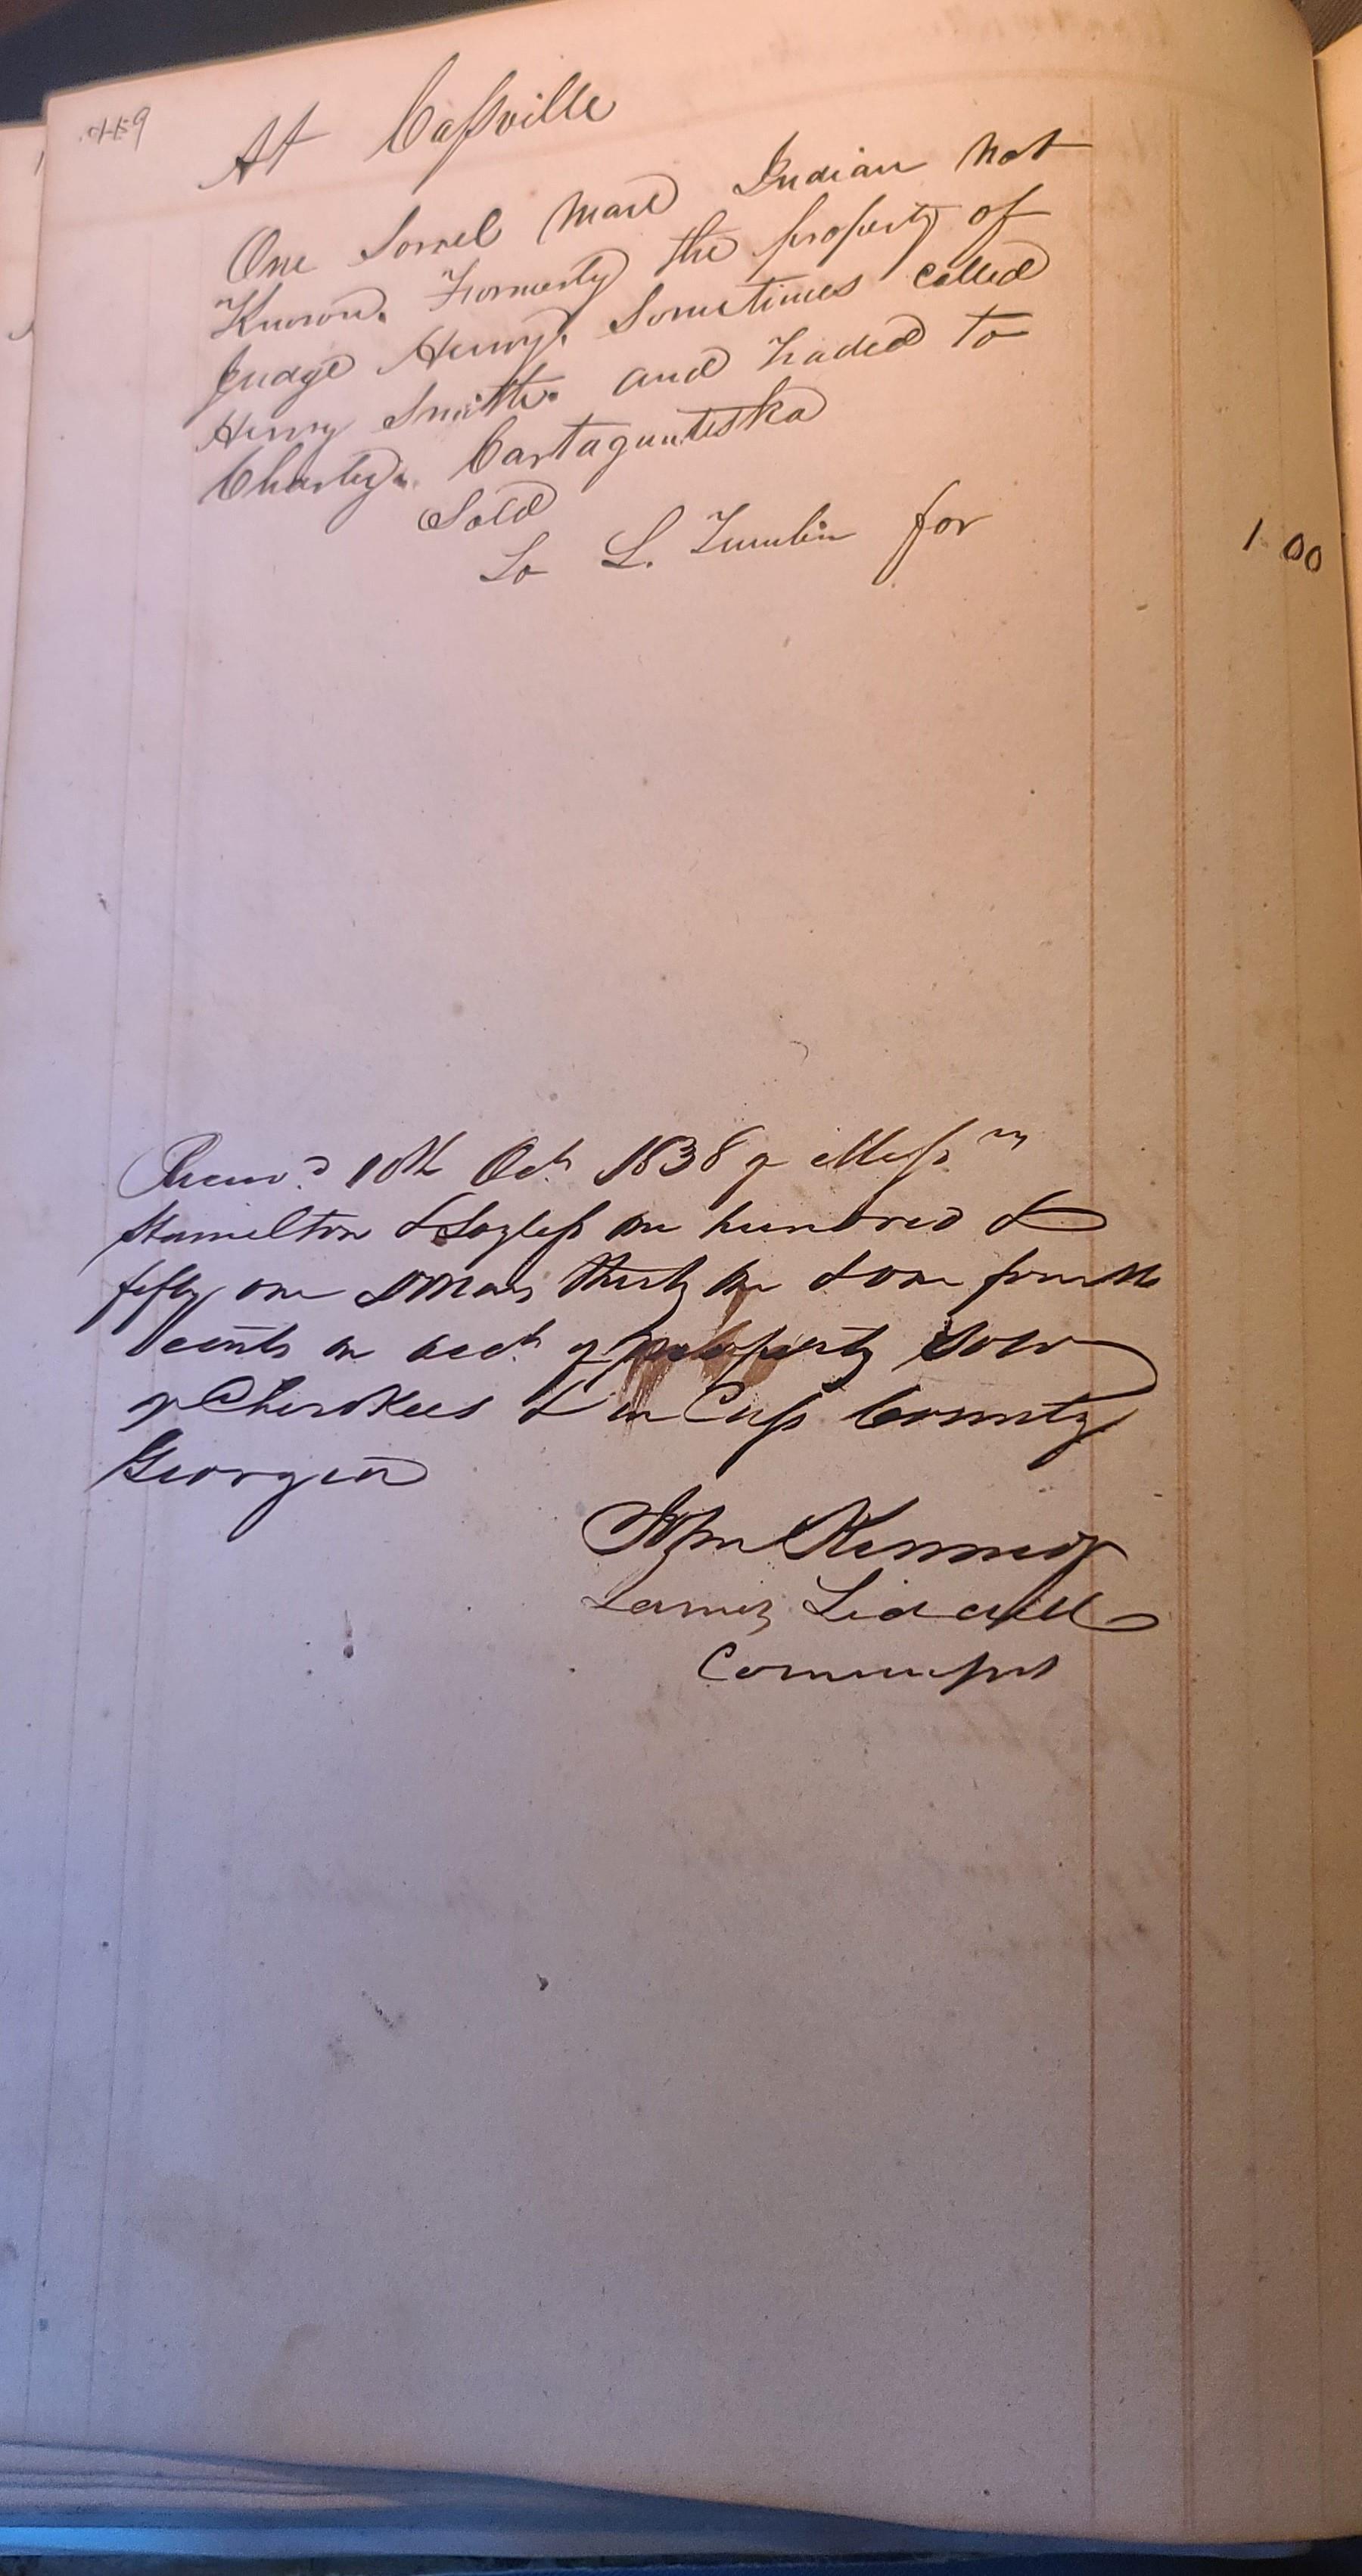 At Cassville
One Sorrel Mare Indian not
Known. Formerly the property of
Judge Henry. Sometimes called
Henry Smith. and traded to
Charley. Cartagunteska
Sold
To L. Tumlin for 1 00
Receivd 10th Oct 1838 of Messrs
Hamilton & one hundred &
fifty one Dollars thirty one & one fourth
cents on acct of property sold
of Cherokees & in Cass County
Georgia
Jno Kennedy
James Liddell
Commissrs